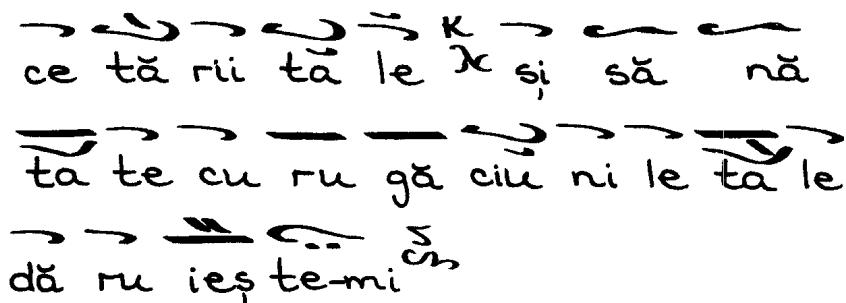 ce tă rii ta le și să nă
ta te cu ru gă ciu ni le ta le
dă ru ieș te-mi